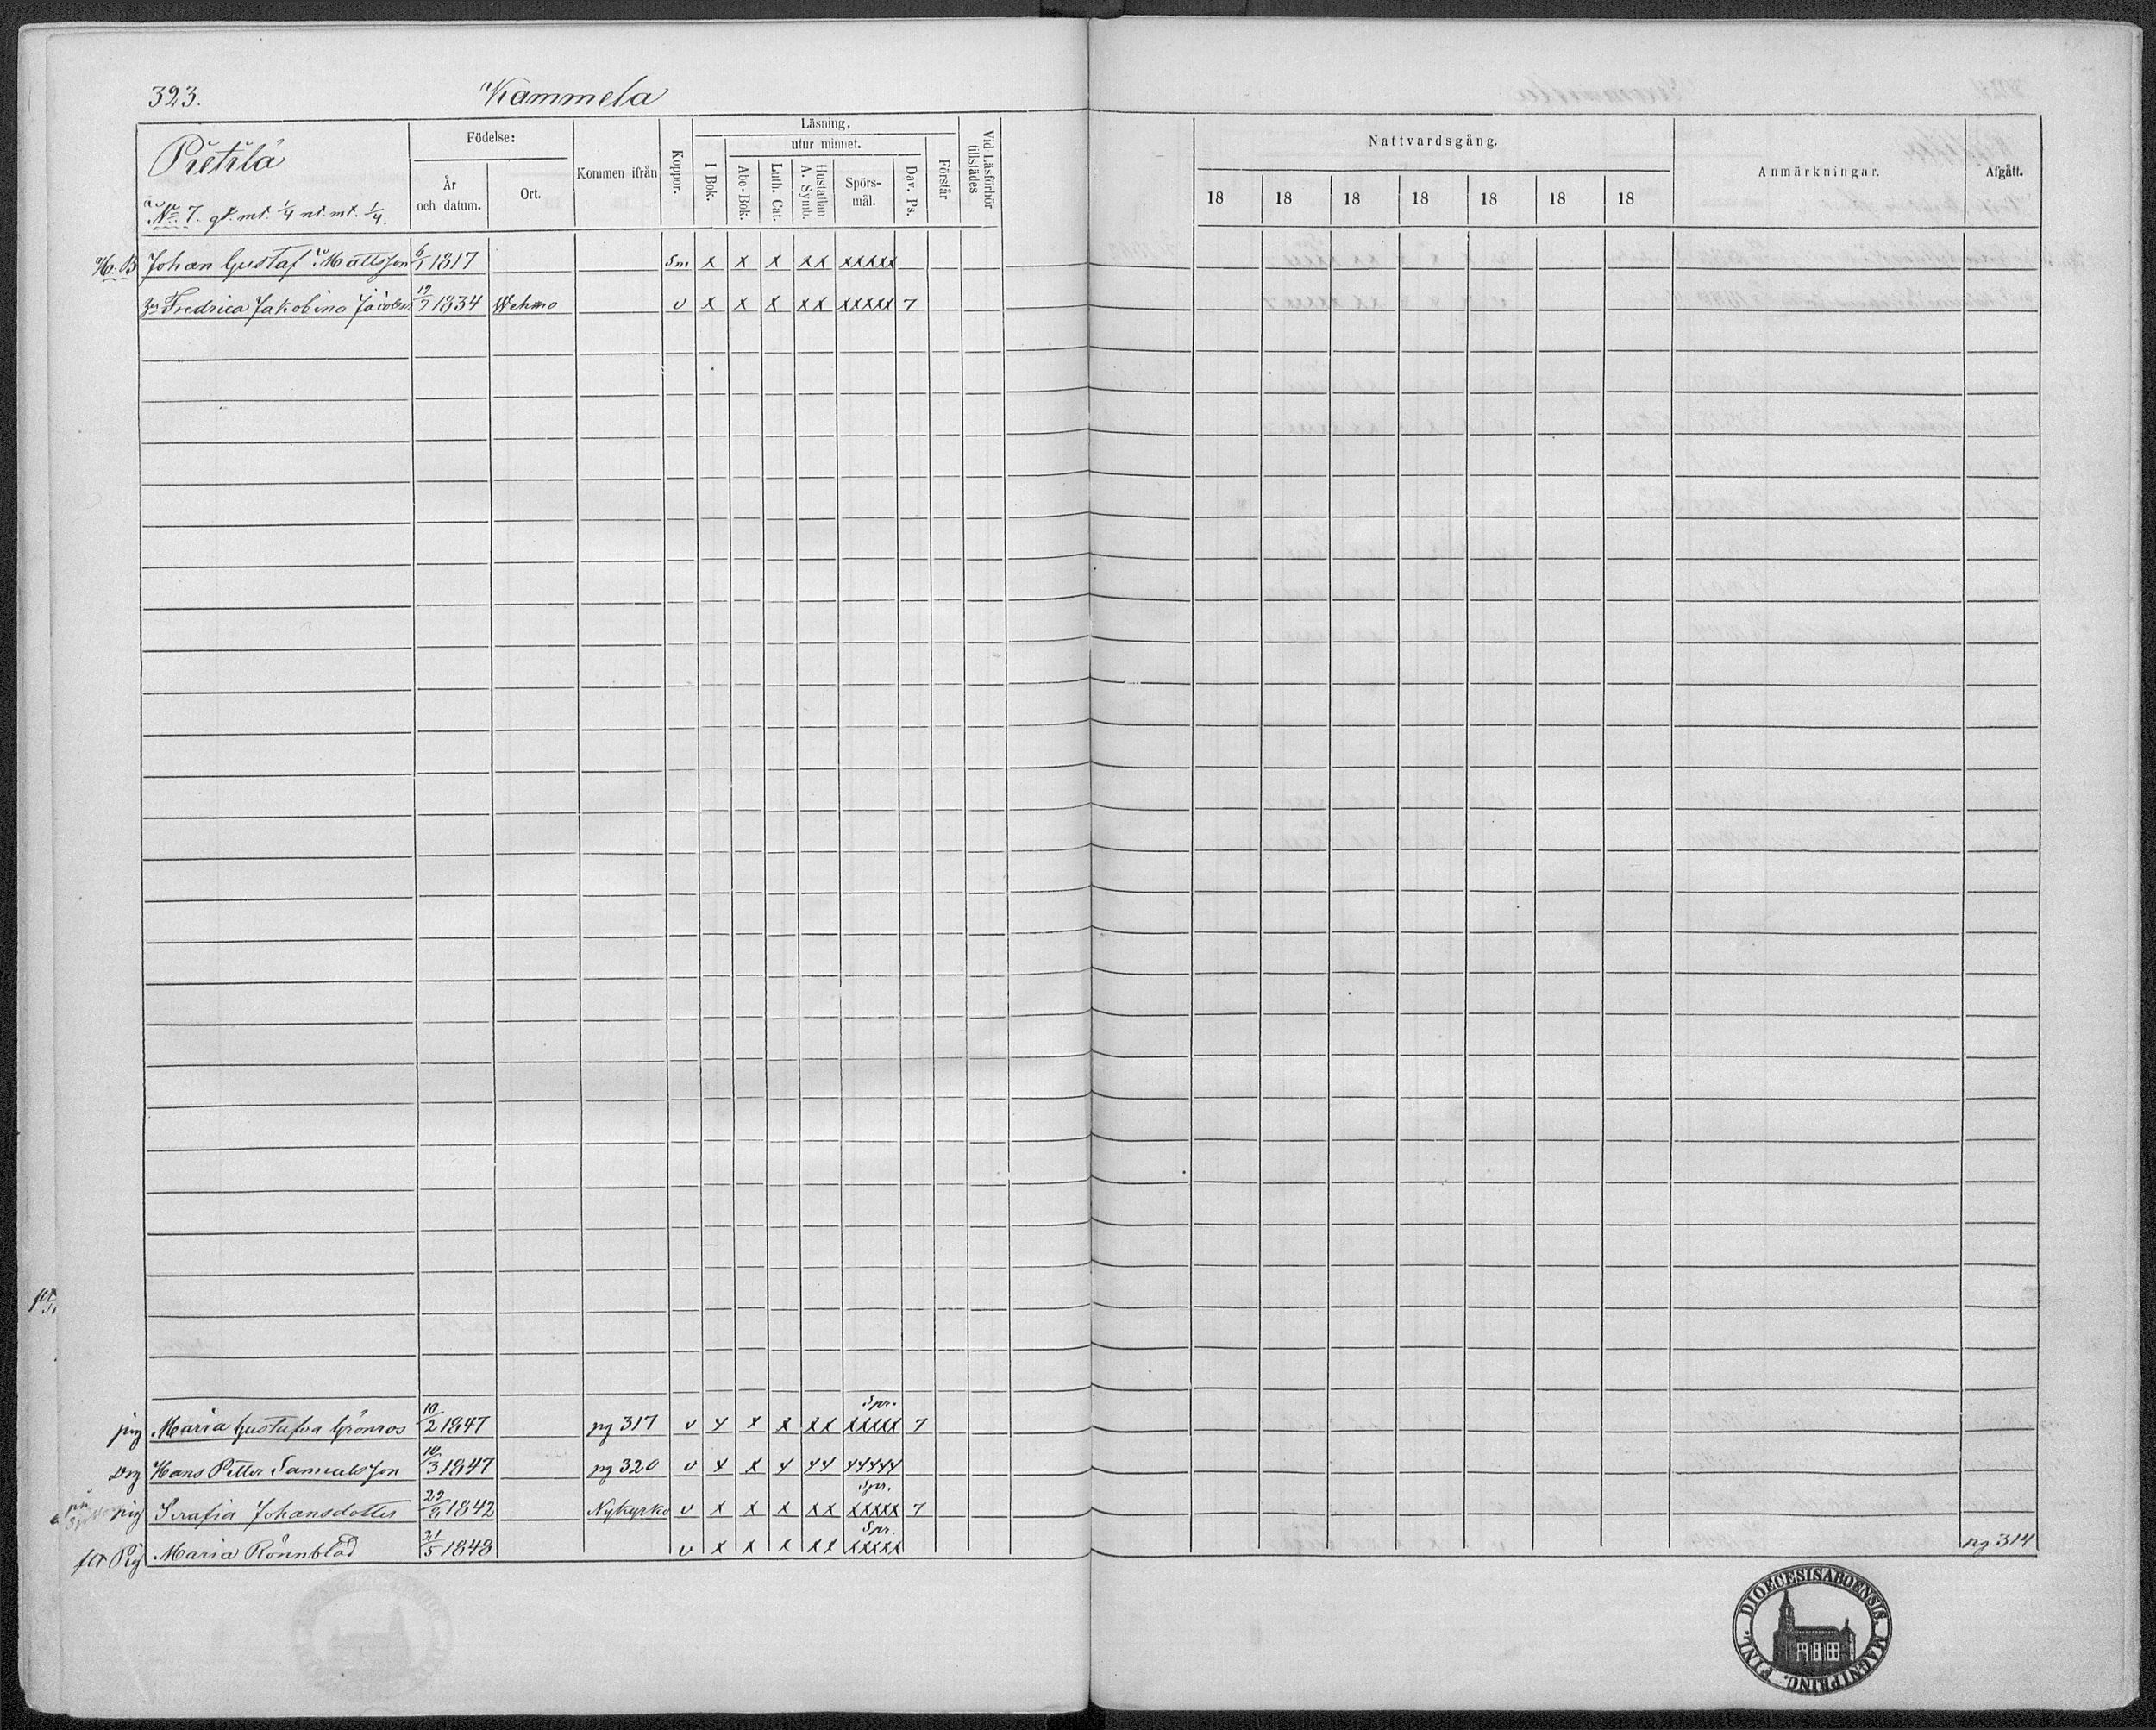 323. Kammela
Pietilä
Nº 7. gt. mt. 1/4 nt. mt. 1/4.
Födelse:
År och datum.
Ort.
Kommen ifrån
Koppor.
Läsning,
utur minnet.
I Bok.
Abc-Bok.
Luth. Cat.
Hustaflan A. Symb.
Spörs-mål.
Dav. Ps.
Förstår
Vid Läsförhör tillstädes
Nattvardsgång.
18 18 18 18 18 18 18
Anmärkningar.
Afgått.
Johan Gustaf Mattsson 6/1 1817 Sm x x x xx xxxxx
Fredrica Jakobina Jacobs 19/7 1834 Wehmo v x x x xx xxxxx 7
Spr.
pig Maria Gustafva Grönros 10/2 1847 pg 317 v x x x xx xxxxx 7
Drg Hans Petter Samuelsson 10/3 1847 pg 320 v
Spr.
pig Serafia Johansdotter 1842 Nykyrko v x x x xx xxxxx 7
Spr.
Pig Maria Rönnblad 21/5 1848 v x x x xx xxxxx pg 314
DIOECESIS ABOENSIS. MAGNI PRINC. FINL.